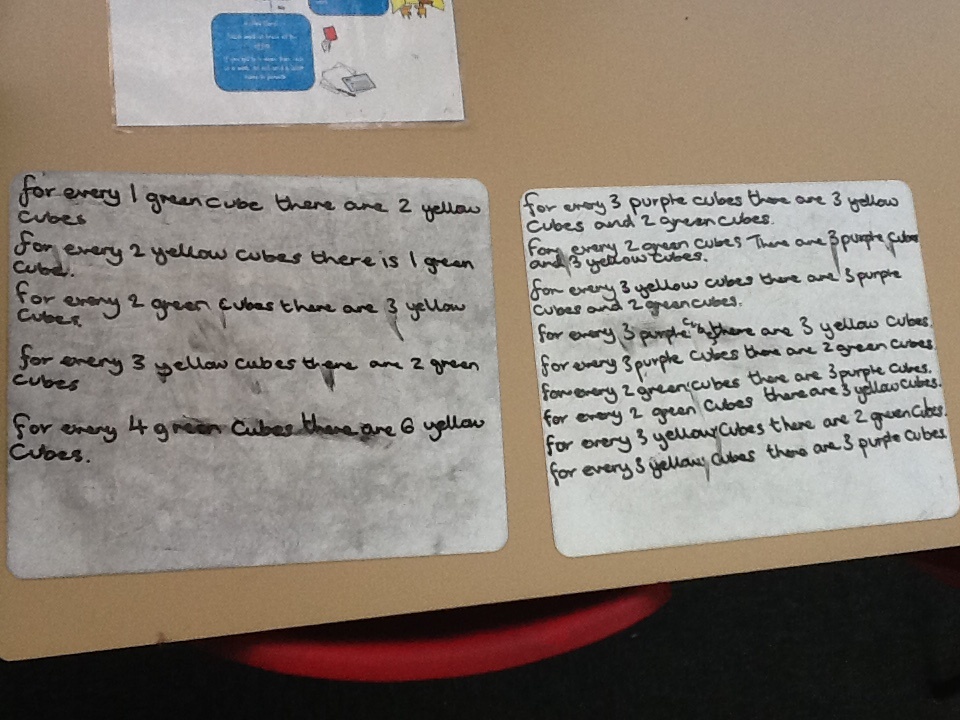 for every 1 green cube there are 2 yellow
cubes
for every 2 yellow cubes there is 1 green
cube.
for every 2 green cubes there are 3 yellow
cubes.
for every 3 yellow cubes there are 2 green
cubes
for every 4 green cubes there are 6 yellow
cubes.
for every 3 purple cubes there are 3 yellow
cubes and 2 green cubes.
for every 2 green cubes There are 3 purple cubes
and 3 yellow cubes.
for every 3 yellow cubes there are 3 purple
cubes and 2 green cubes.
for every 3 purple cubes there are 3 yellow cubes.
for every 3 purple cubes there are 2 green cubes.
for every 2 green cubes there are 3 purple cubes.
for every 2 green cubes there are 3 yellow cubes.
for every 3 yellow cubes there are 2 green cubes.
for every 3 yellow cubes there are 3 purple cubes.